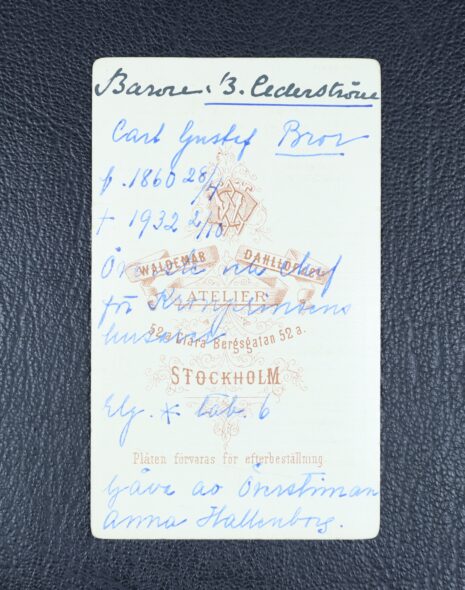 Baron. B. Cederström
Carl Gustaf Bror
f. 1860 28/7
† 1932 2/10
WALDEMAR DAHLLÖF
Överste chef
ATELIER
för Kronprinsens
52a Clara Bergsgatan 52a.
husarer
STOCKHOLM
Elg. * lab. 6
Plåten förvaras för efterbeställning
Gåva av Överstinnan
Anna Hallenborg.